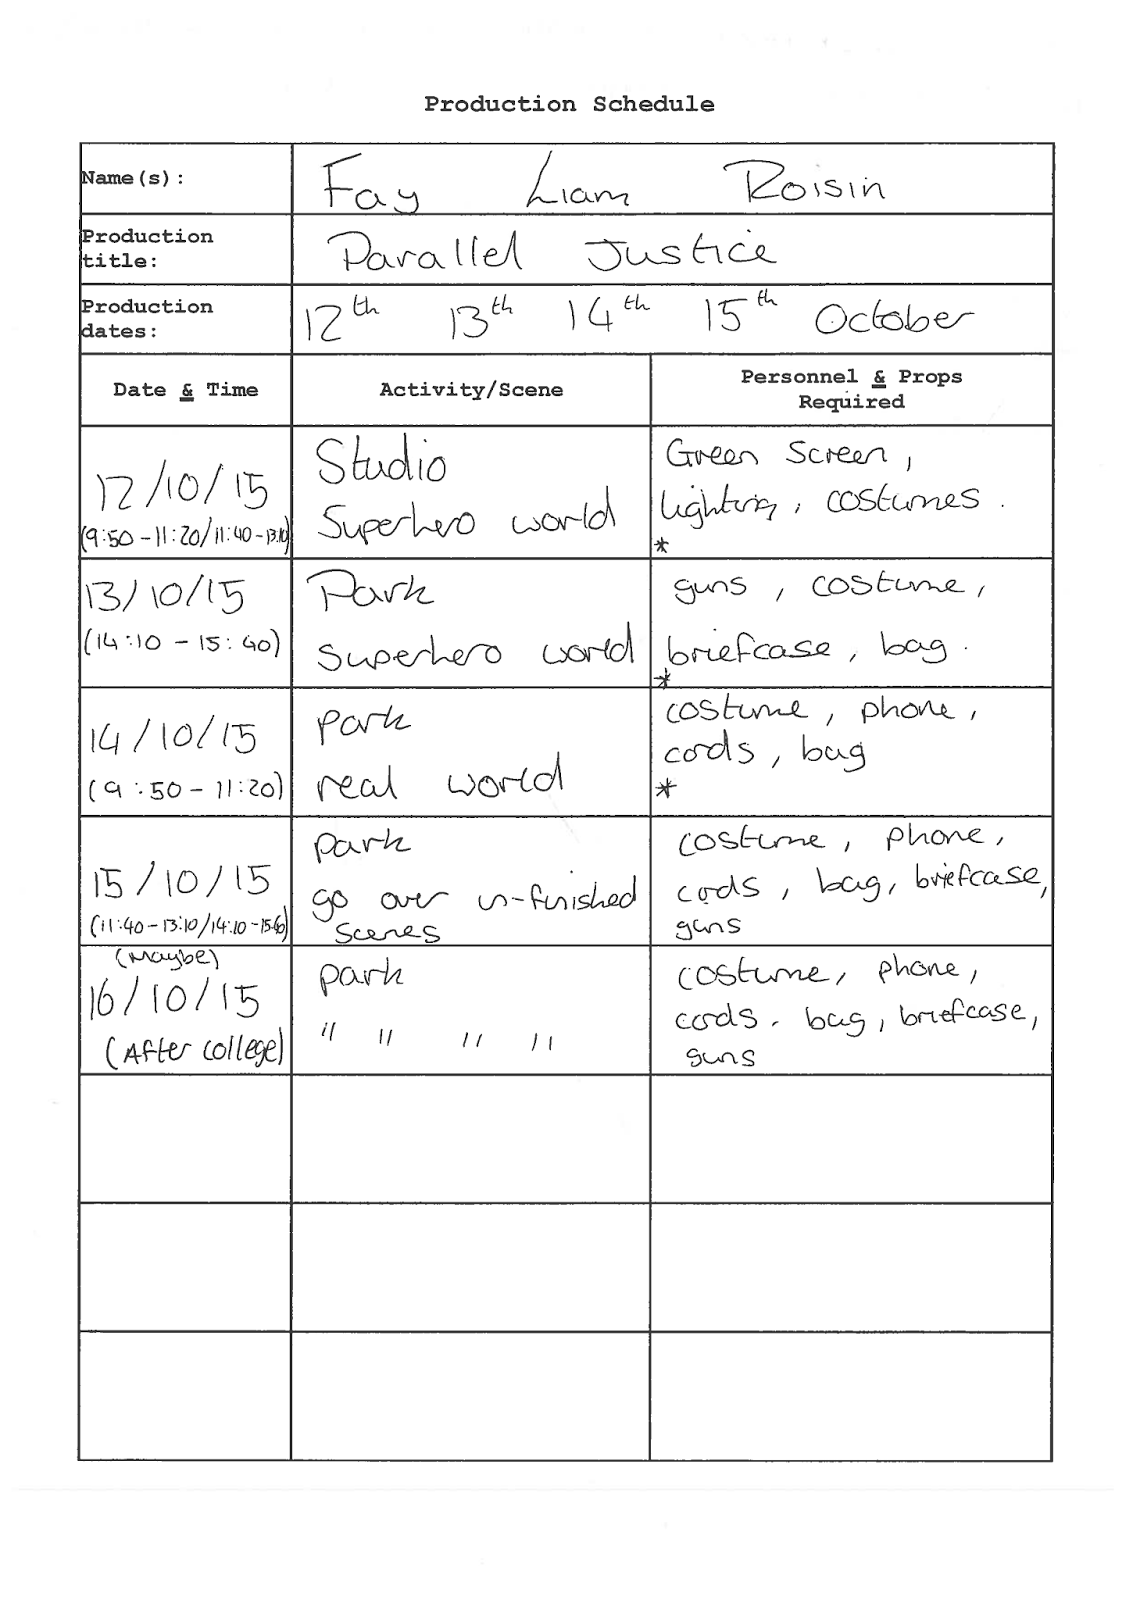 Production Schedule
Name(s): Fay Liam Roisin
Production title: Parallel Justice
Production dates: 12th 13th 14th 15th October
Date & Time Activity/Scene Personnel & Props Required
12/10/15
(9:50-11:20/11:40-13:10)
Studio
Superhero world
Green Screen,
lighting, costumes.
*
13/10/15
(14:10-15:40)
Park
Superhero world
guns, costume,
briefcase, bag.
*
14/10/15
(9:50-11:20)
park
real world
costume, phone,
cards, bag
*
15/10/15
(11:40-13:10/14:10-15:40)
park
go over un-finished
scenes
costume, phone,
cards, bag, briefcase,
guns
(Maybe)
16/10/15
(After college)
park
" " " "
costume, phone,
cards. bag, briefcase,
guns